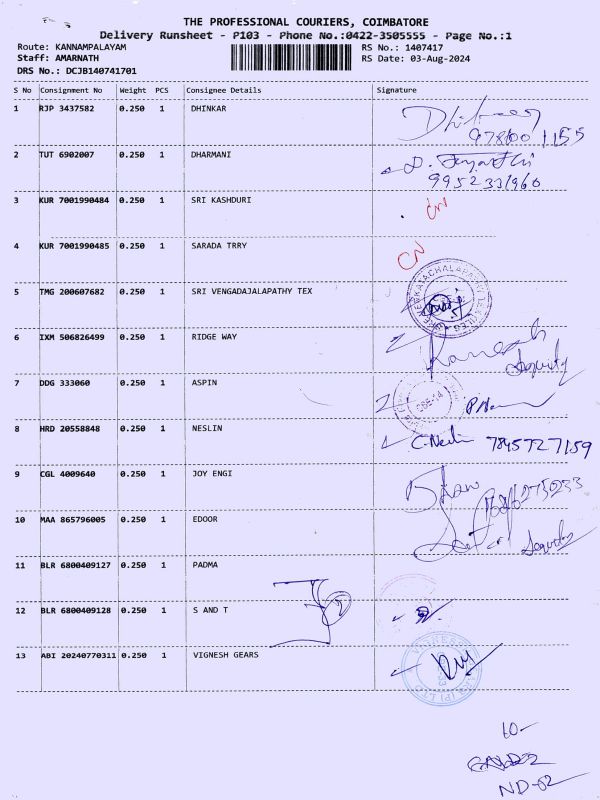 THE PROFESSIONAL COURIERS, COIMBATORE
Delivery Runsheet - P103 - Phone No.:0422-3505555 - Page No.:1
Route: KANNAMPALAYAM RS No.: 1407417
Staff: AMARNATH RS Date: 03-Aug-2024
DRS No.: DCJB140741701
S No Consignment No Weight PCS Consignee Details Signature
1 RJP 3437582 0.250 1 DHINKAR
2 TUT 6902007 0.250 1 DHARMANI
9952331960
3 KUR 7001990484 0.250 1 SRI KASHDURI CN
4 KUR 7001990485 0.250 1 SARADA TRRY CN
5 TMG 200607682 0.250 1 SRI VENGADAJALAPATHY TEX
6 IXM 506826499 0.250 1 RIDGE WAY
Ramesh
Security
7 DDG 333060 0.250 1 ASPIN
8 HRD 20558848 0.250 1 NESLIN C. Neslin 7845727159
9 CGL 4009640 0.250 1 JOY ENGI
10 MAA 865796005 0.250 1 EDOOR
Security
11 BLR 6800409127 0.250 1 PADMA
12 BLR 6800409128 0.250 1 S AND T
13 ABI 20240770311 0.250 1 VIGNESH GEARS
10-
ND-02